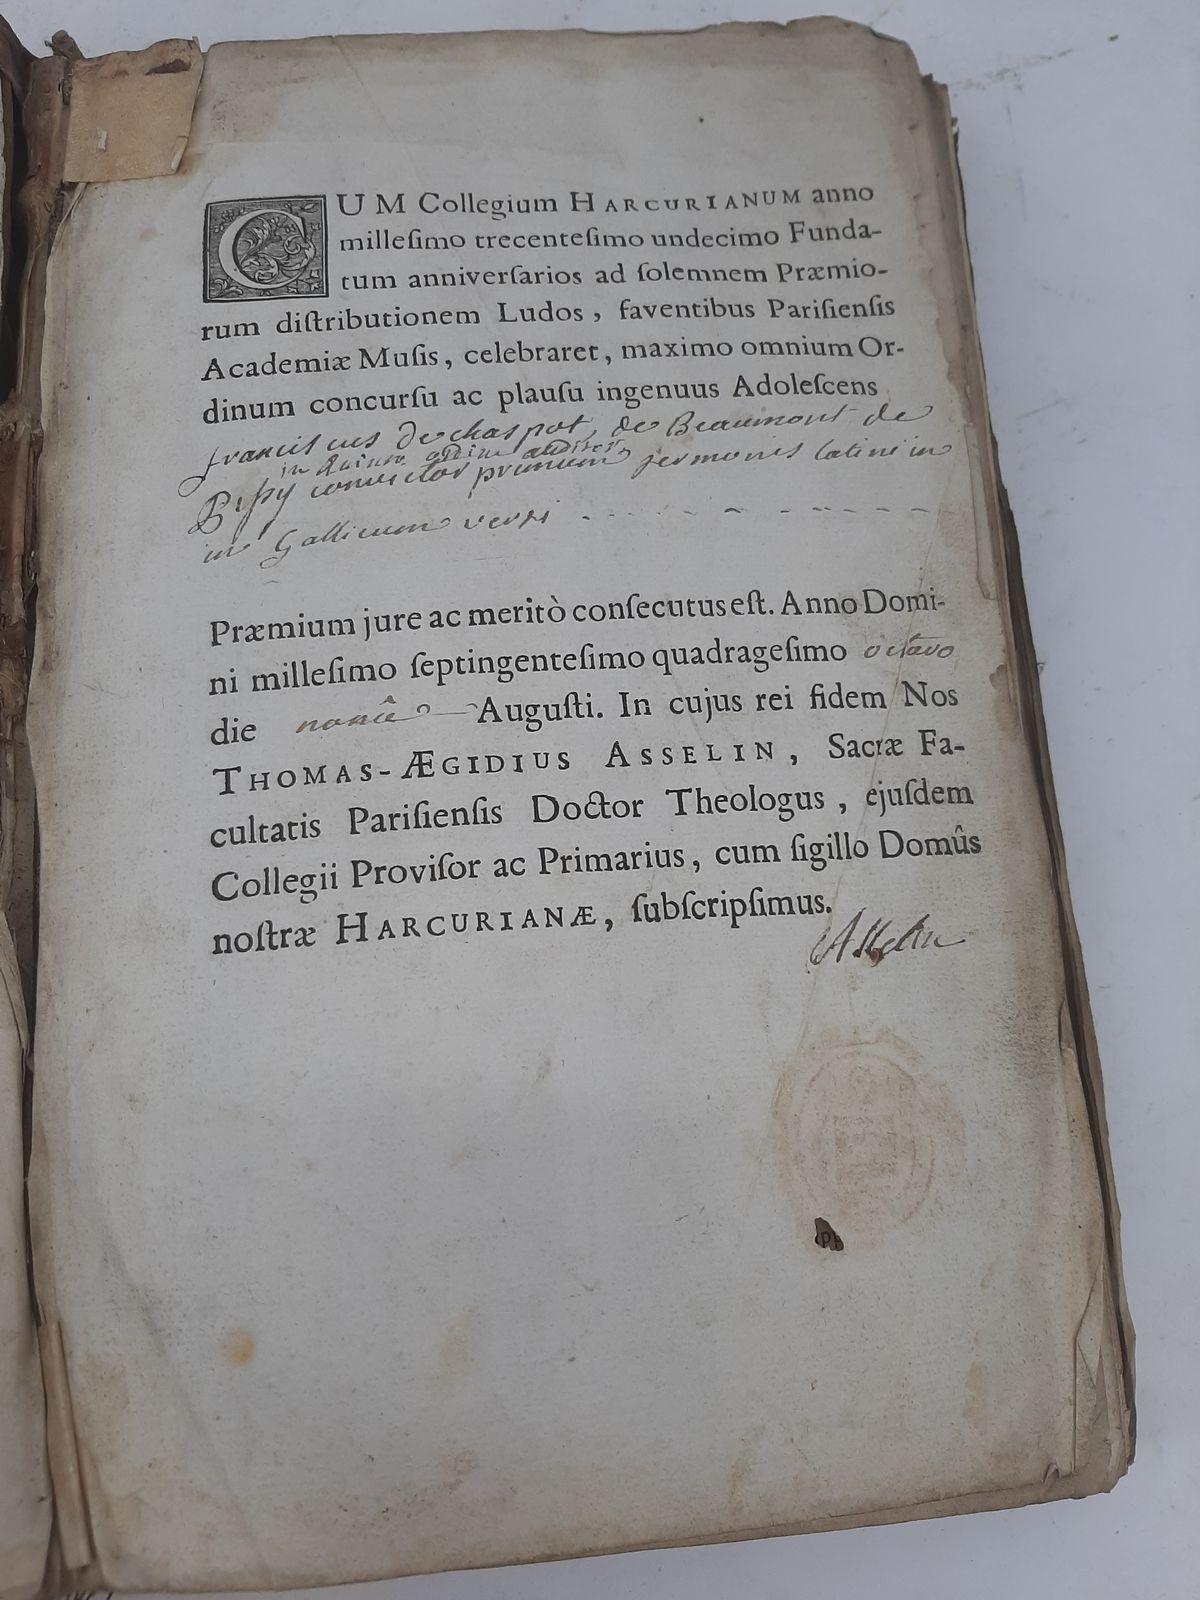 CUM Collegium HARCURIANUM anno
milleſimo trecenteſimo undecimo Funda-
tum anniverſarios ad ſolemnem Præmio-
rum diſtributionem Ludos, faventibus Pariſienſis
Academiæ Muſis, celebraret, maximo omnium Or-
dinum concurſu ac plauſu ingenuus Adoleſcens
franciscus de chaspot, de Beaumont de
in Quinto ordine auditor
convictor primum sermonis latini in
in Gallicum versi
Præmium jure ac meritò conſecutus eſt. Anno Domi-
ni milleſimo ſeptingenteſimo quadrageſimo octavo
die nonâ Auguſti. In cujus rei fidem Nos
THOMAS-ÆGIDIUS ASSELIN, Sacræ Fa-
cultatis Pariſienſis Doctor Theologus, ejuſdem
Collegii Proviſor ac Primarius, cum ſigillo Domûs
noſtræ HARCURIANÆ, ſubſcripſimus.
Asselin